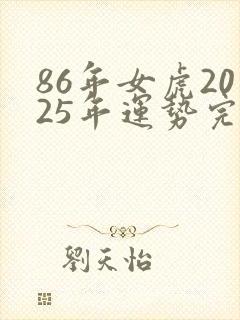 86年女虎20
25年運势完
劉天怡